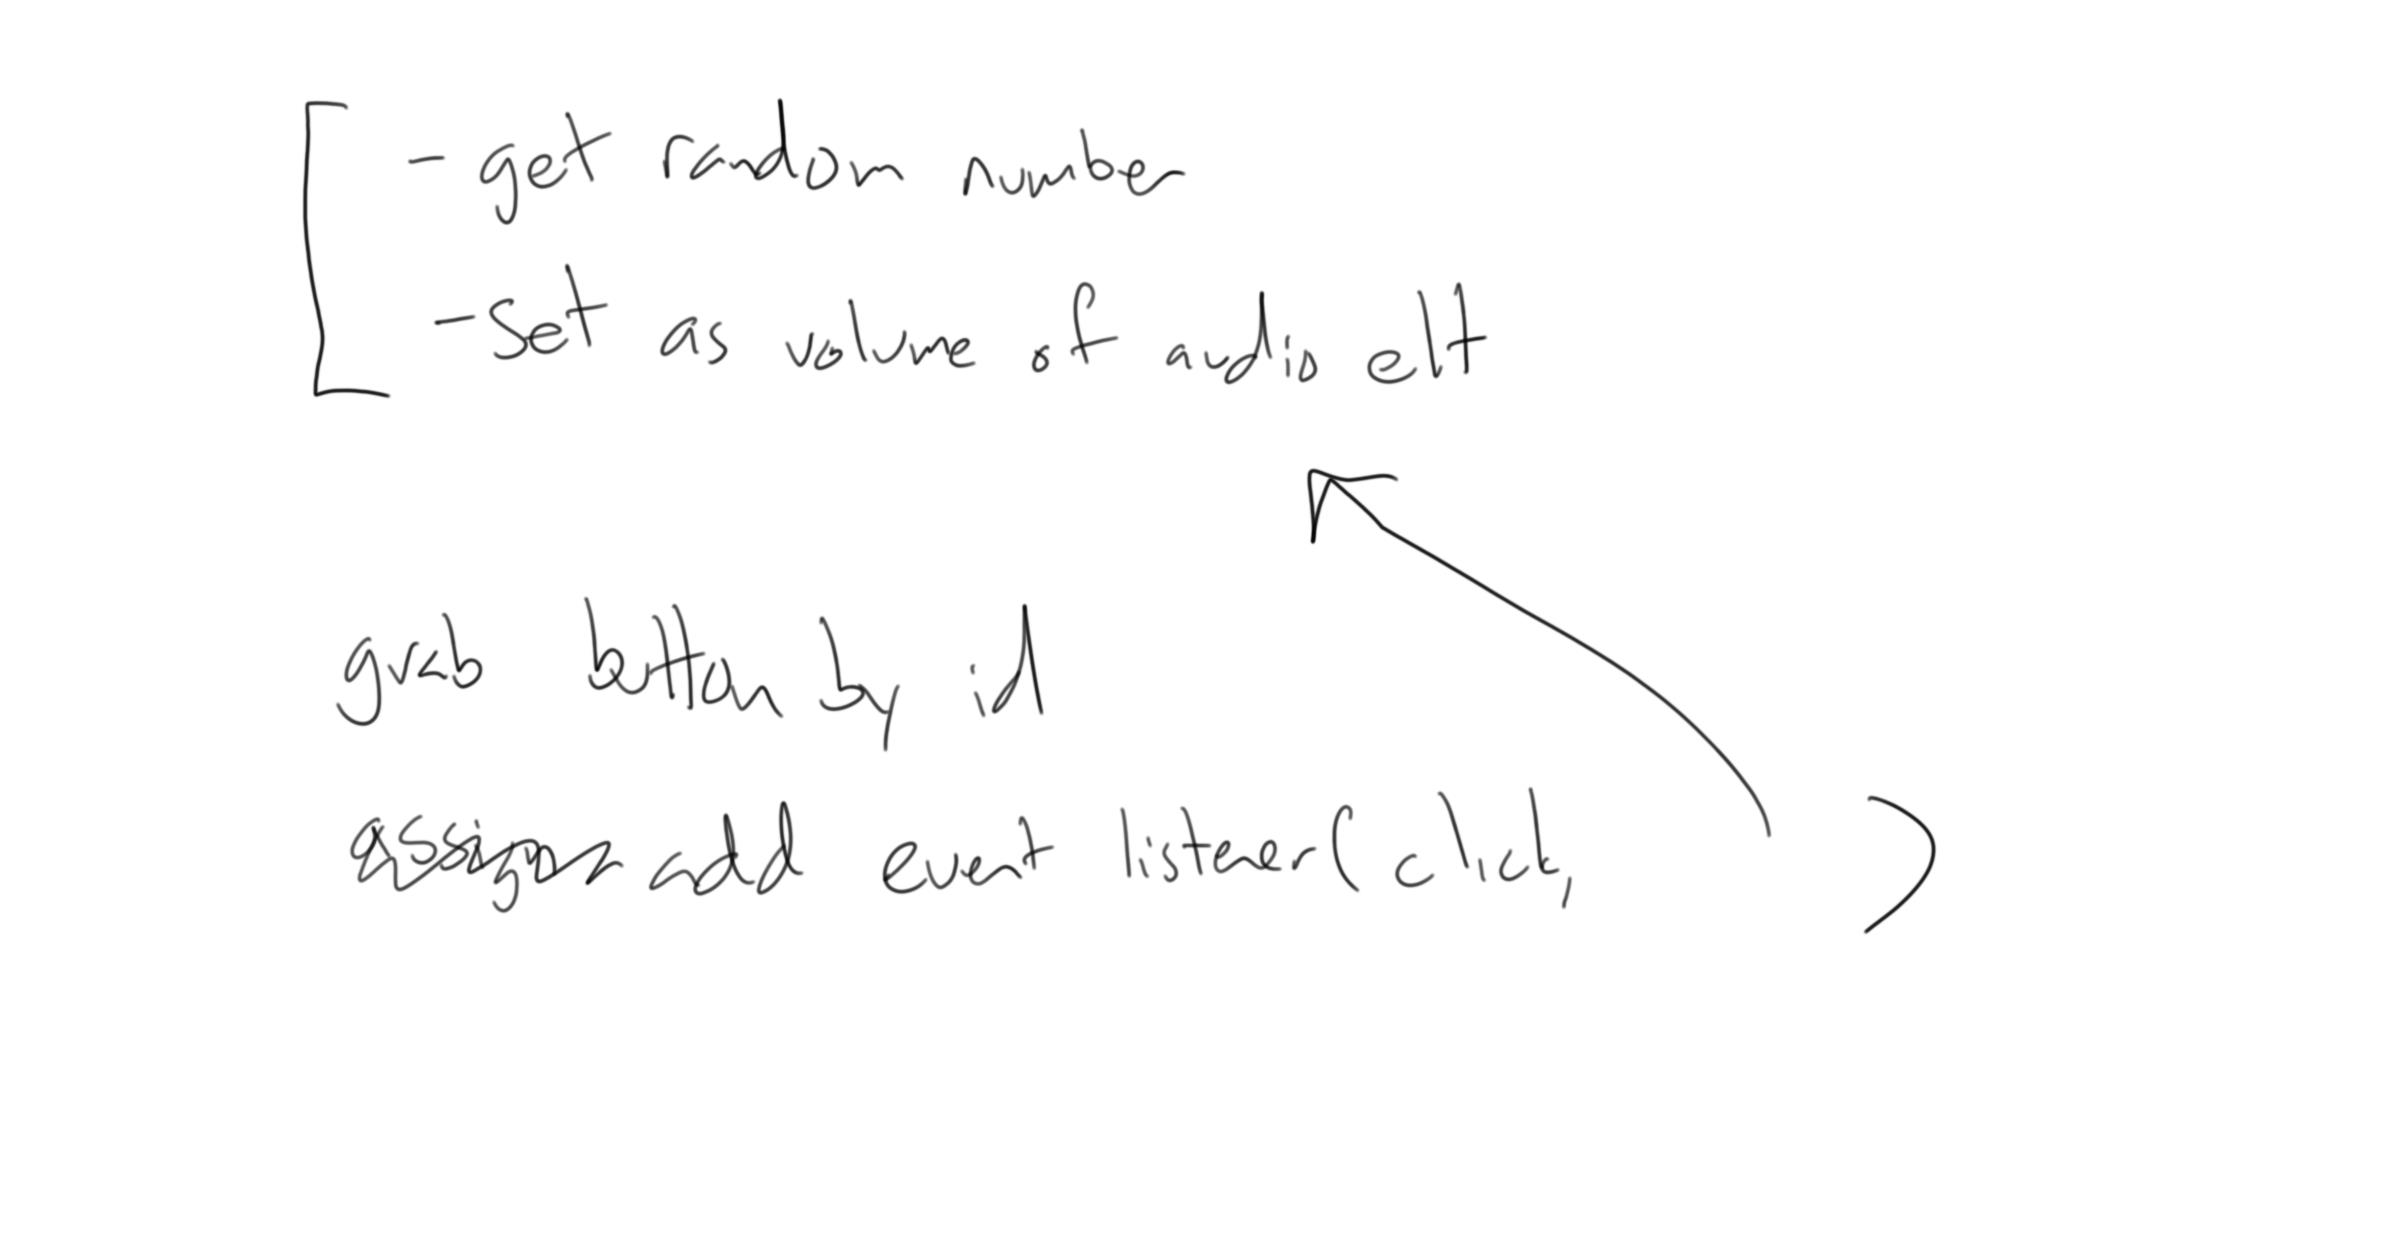 - get random number
- set as volume of audio elt
grab button by id
assign add event listener(click, )